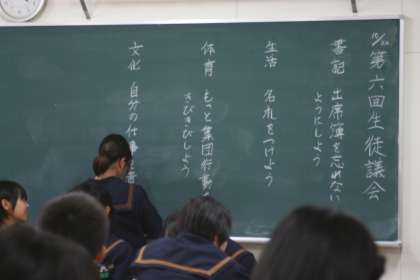 10/20 第六回生徒議会
書記 出席簿を忘れない
ようにしよう
生活 名札をつけよう
体育 もっと集団行動
きびきびしよう
文化 自分の仕事を